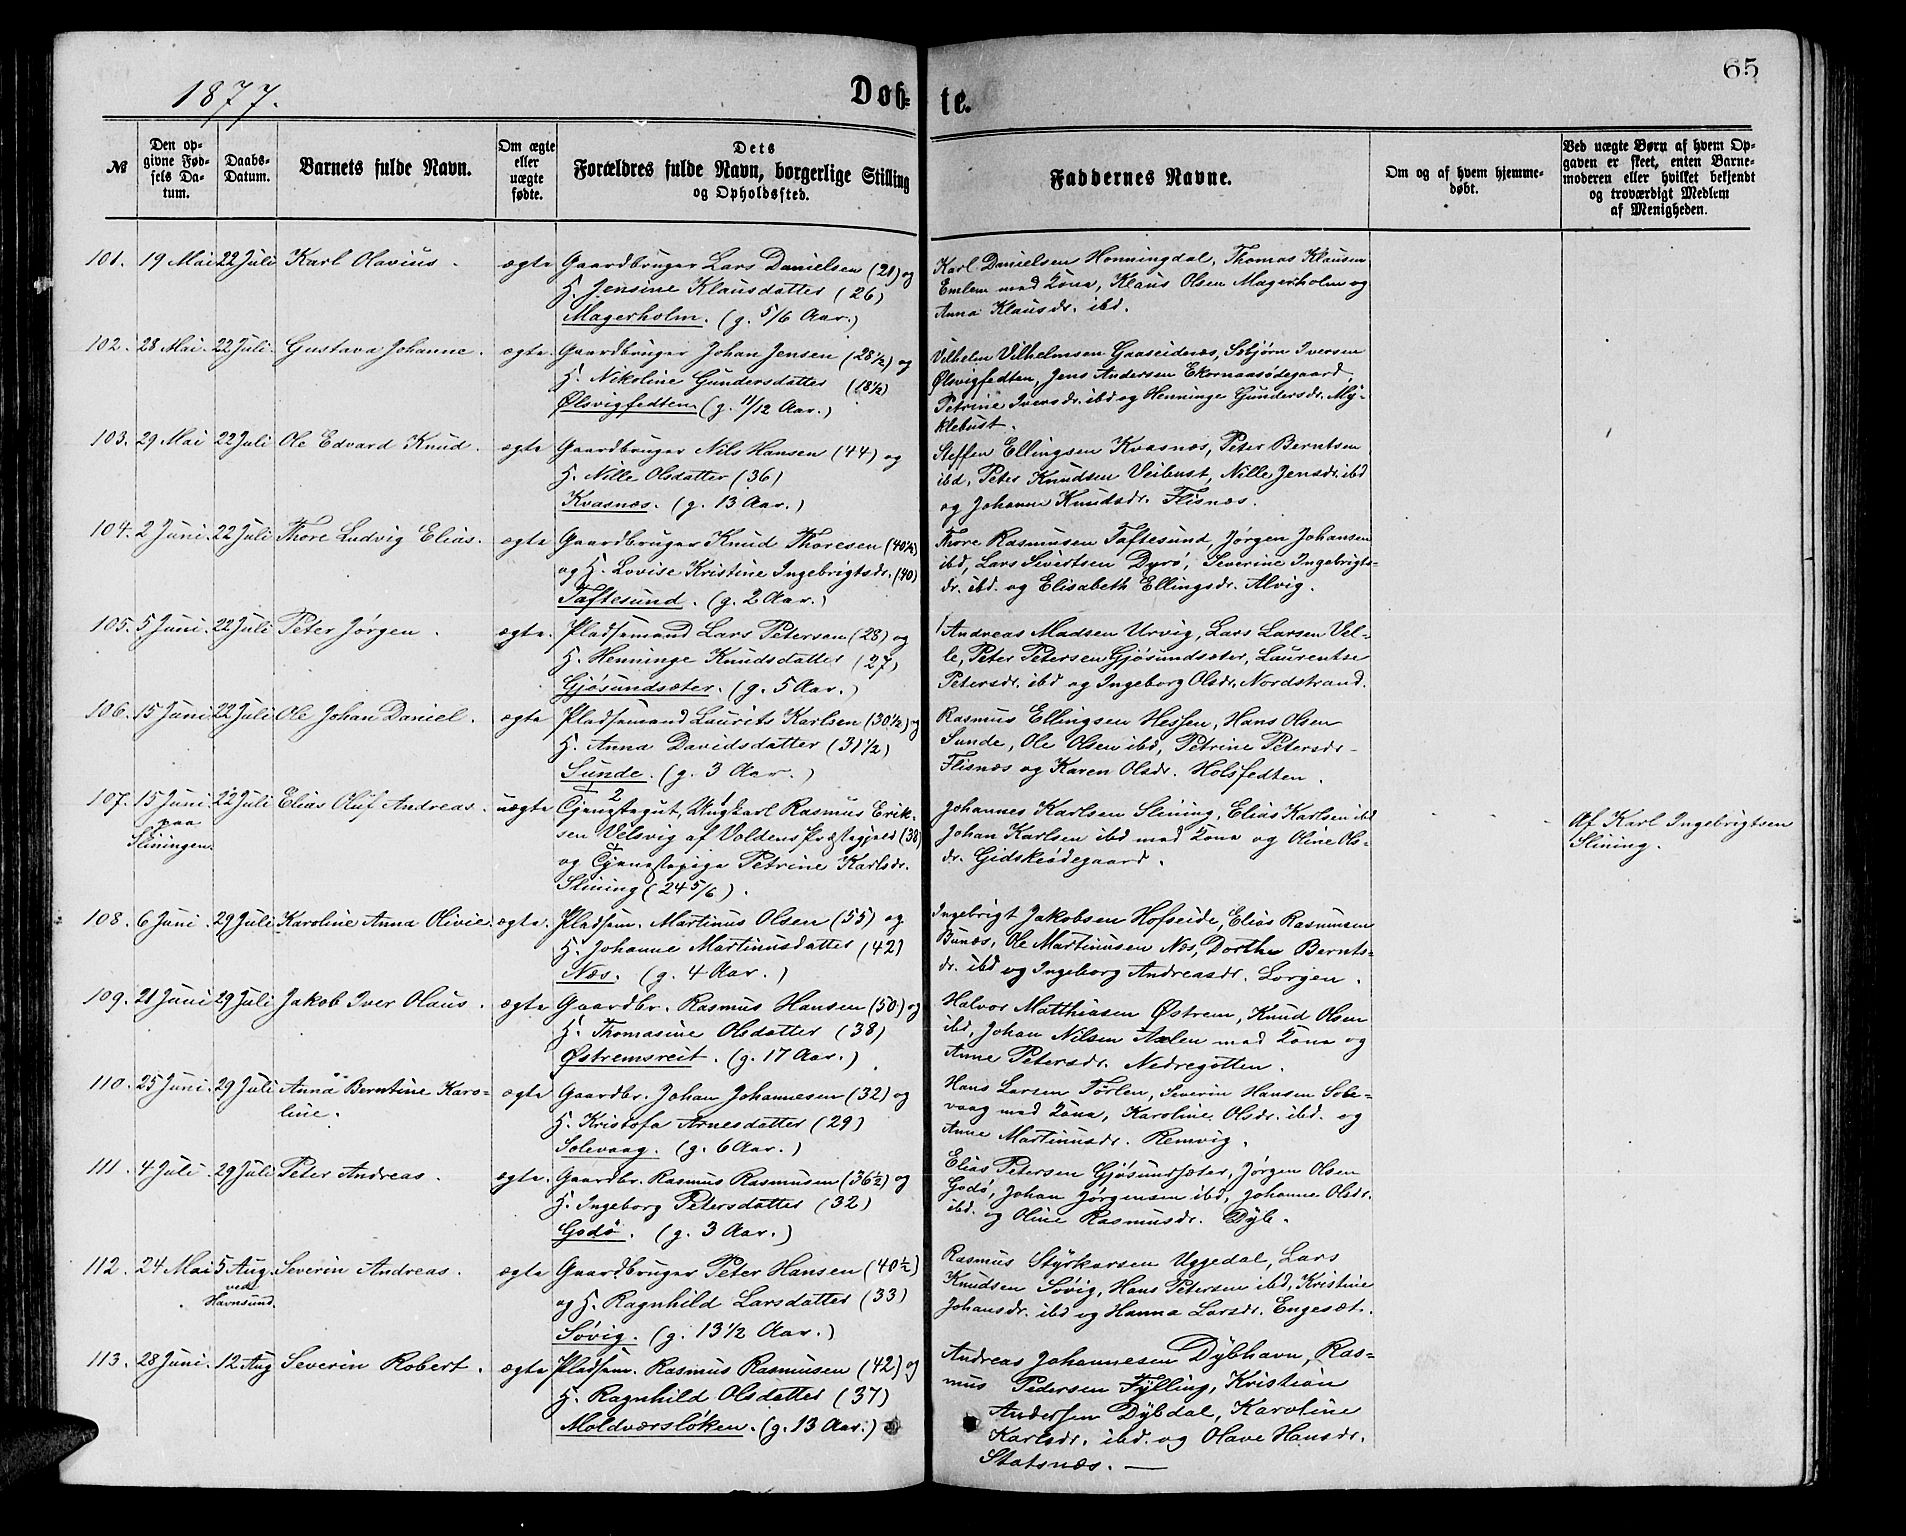 1877.
Døb-
te.
65
№
Den op-
givne Fød-
sels Da-
tum.
Daabs-
Datum.
Barnets fulde Navn.
Om ægte
eller
uægte
fødte.
Dets
Forældres fulde Navn, borgerlige Stilling
og Opholdssted.
Faddernes Navne.
Om og af hvem hjemme-
døbt.
Ved uægte Børn af hvem Op-
gaven er skeet, enten Barne-
moderen eller hvilket bekjendt
og troværdigt Medlem
af Menigheden.
101. 19 Mai 22 Juli Karl Olavius. ægte Gaardbruger Lars Danielsen (21) og
H. Jensine Klausdatter (26)
Magerholm. (g. 5/6 Aar.)
Karl Danielsen Honningdal, Thomas Klausen
Emlem med Kona, Klaus Olsen Magerholm og
Anna Klausdr. ibd.
102. 28 Mai. 22 Juli. Gustava Johanne. ægte. Gaardbruger Johan Jensen (28 1/2) og
H. Nikoline Gundersdatter (18 1/2)
Ølsvigfedten. (g. 11/12 Aar.)
Vilhelm Vilhelmsen Gaaseidenæs, Esbjørn Iversen
Ølsvigfedten, Jens Andersen Ekornaasødegaard,
Petrine Iversdr. ibd og Henninge Gundersdr. My-
klebust.
103. 29 Mai 22 Juli Ole Edvard Knud. ægte Gaardbruger Nils Hansen (44) og
H. Nille Olsdatter (36)
Kvasnæs. (g. 13 Aar.)
Steffen Ellingsen Kvasnæs, Peter Berntsen
ibd, Peter Knudsen Veibust, Nille Jensdr. ibd
og Johanne Knudsdr. Flisnæs.
104. 2 Juni. 22 Juli Thore Ludvig Elias. ægte Gaardbruger Knud Thoresen (40 1/2)
og H. Lovise Kristine Ingebrigtsdr. (40)
Taftesund. (g. 2 Aar.)
Thore Rasmusen Taftesund, Jørgen Johansen
ibd, Lars Sivertsen Dyrø, Severine Ingebrigts-
dr. ibd. og Elisabeth Ellingsdr. Alvig.
105. 5 Juni. 22 Juli Peter Jørgen. ægte. Pladsemand Lars Petersen (28) og
H. Henninge Knudsdatter (27)
Gjøsundsæter. (g. 5 Aar.)
Andreas Madsen Urvig, Lars Larsen Vel-
le, Peter Petersen Gjøsundsæter, Laurentse
Petersdr. ibd og Ingeborg Olsdr. Nordstrand.
106. 15 Juni. 22 Juli. Ole Johan Daniel. ægte Pladsemand Laurits Karlsen (30 1/2) og
H. Anna Davidsdatter (31 1/2)
Sunde. (g. 3 Aar.)
Rasmus Ellingsen Hessen, Hans Olsen
Sunde, Ole Olsen ibd, Petrine Petersdr.
Flisnæs og Karen Olsdr. Holsfedten.
107. 15 Juni 22 Juli Elias Oluf Andreas. uægte Tjenestegut, Ungkarl Rasmus Erik-
paa
Sliningen.
sen Velsvig af Voldens Præstegjeld (38)
og Tjenestepige Petrine Karlsdr.
Slining (24 5/6).
Johannes Karlsen Slining, Elias Karlsen ibd
Johan Karlsen ibd med Kona og Oline Ols-
dr. Gidskeødegaard.
Af Karl Ingebrigtsen
Slining.
108. 6 Juni. 29 Juli Karoline Anna Olivie. ægte. Pladsem. Martinus Olsen (55) og
H. Johanne Martinusdatter (42)
Næs. (g. 4 Aar.)
Ingebrigt Jakobsen Hofseide, Elias Rasmusen
Bunæs, Ole Martinusen Næs, Dorthe Bernts-
dr. ibd og Ingeborg Andreasdr. Lorgen.
109. 21 Juni 29 Juli Jakob Iver Olaus. ægte Gaardbr. Rasmus Hansen (50) og
H. Thomasine Olsdatter (38)
Østremsreit. (g. 17 Aar.)
Halvor Matthiasen Østrem, Knud Olsen
ibd, Johan Nilsen Aalen med Kona og
Anne Petersdr. Nedregotten.
110. 25 Juni. 29 Juli Anna Berntine Karo-
line.
ægte Gaardbr. Johan Johannesen (32) og
H. Kristofa Arnesdatter (29)
Solevaag. (g. 6 Aar.)
Hans Larsen Tørlen, Severin Hansen Sole-
vaag med Kona, Karoline Olsdr. ibd. og
Anne Martinusdr. Remvig.
111. 4 Juli. 29 Juli Peter Andreas. ægte. Gaardbr. Rasmus Rasmusen (36 1/2) og
H. Ingeborg Petersdatter (32)
Godø. (g. 3 Aar.)
Elias Petersen Gjøsundsæter, Jørgen Olsen
Godø, Johan Jørgensen ibd, Johanne Olsdr.
ibd. og Oline Rasmusdr. Dyb.
112. 24 Mai 5 Aug. Severin Andreas. ægte Gaardbruger Peter Hansen (40 1/2)
ved
Havnsund.
og H. Ragnhild Larsdatter (33)
Søvig. (g. 13 1/2 Aar.)
Rasmus Styrkarsen Uggedal, Lars
Knudsen Søvig, Hans Petersen ibd, Kristine
Johansdr. ibd og Hanna Larsdr. Engesæt.
113. 28 Juni. 12 Aug Severin Robert. ægte Pladsem. Rasmus Rasmusen (42) og
H. Ragnhild Olsdatter (37)
Moldværsløken. (g. 13 Aar.)
Andreas Johannesen Dybhavn, Ras-
mus Pedersen Fylling, Kristian
Andersen Dybdal, Karoline
Karlsdr. ibd. og Olave Hansdr.
Statsnæs. —